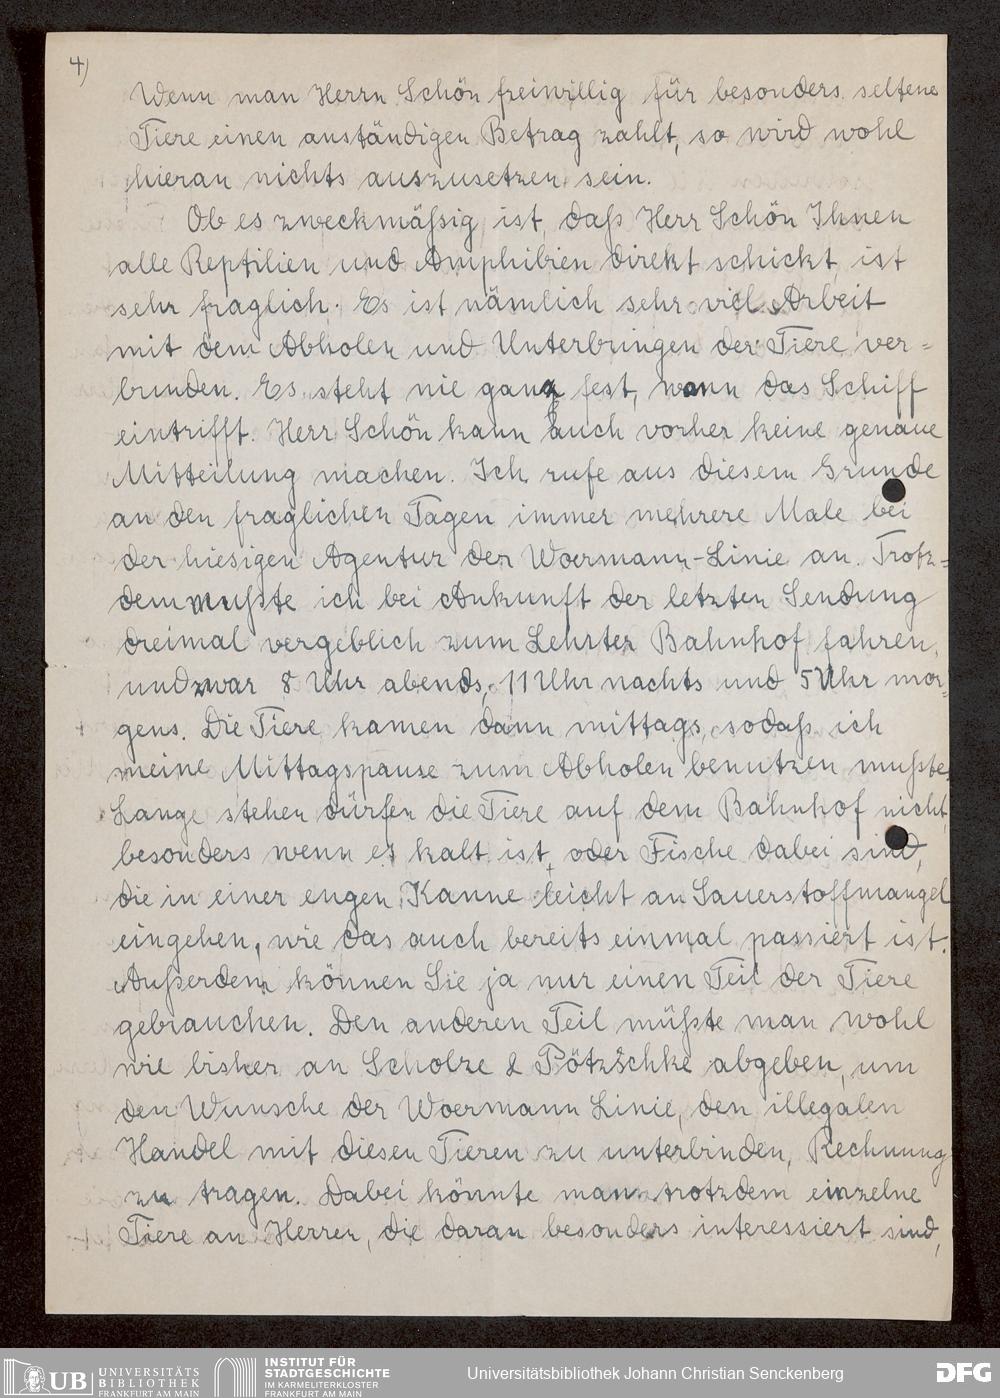 4)
Wenn man Herrn Schön freiwillig für besonders seltene
Tiere einen anständigen Betrag zahlt, so wird wohl
hieran nichts auszusetzen sein.
Ob es zweckmäßig ist, daß Herr Schön Ihnen
alle Reptilien und Amphibien direkt schickt, ist
sehr fraglich. Es ist nämlich sehr viel Arbeit
mit dem Abholen und Unterbringen der Tiere ver=
bunden. Es steht nie ganz fest, wann das Schiff
eintrifft. Herr Schön kann auch vorher keine genaue
Mitteilung machen. Ich rufe aus diesem Grunde
an den fraglichen Tagen immer mehrere Male bei
der hiesigen Agentur der Woermann-Linie an. Trotz=
dem mußte ich bei Ankunft der letzten Sendung
dreimal vergeblich zum Lehrter Bahnhof fahren,
und zwar 8 Uhr abends, 11 Uhr nachts und 5 Uhr mor=
gens. Die Tiere kamen dann mittags, sodaß ich
meine Mittagspause zum Abholen benutzen mußte.
Lange stehen dürfen die Tiere auf dem Bahnhof nicht,
besonders wenn es kalt ist, oder Fische dabei sind,
die in einer engen Kanne leicht an Sauerstoffmangel
eingehen, wie das auch bereits einmal passiert ist.
Außerdem können Sie ja nur einen Teil der Tiere
gebrauchen. Den anderen Teil müßte man wohl
wie bisher an Scholze & Pötzschke abgeben, um
den Wunsche der Woermann Linie, den illegalen
Handel mit diesen Tieren zu unterbinden, Rechnung
zu tragen. Dabei könnte man trotzdem einzelne
Tiere an Herren, die daran besonders interessiert sind,
UB UNIVERSITÄTS
BIBLIOTHEK
FRANKFURT AM MAIN
INSTITUT FÜR
STADTGESCHICHTE
IM KARMELITERKLOSTER
FRANKFURT AM MAIN
Universitätsbibliothek Johann Christian Senckenberg
DFG